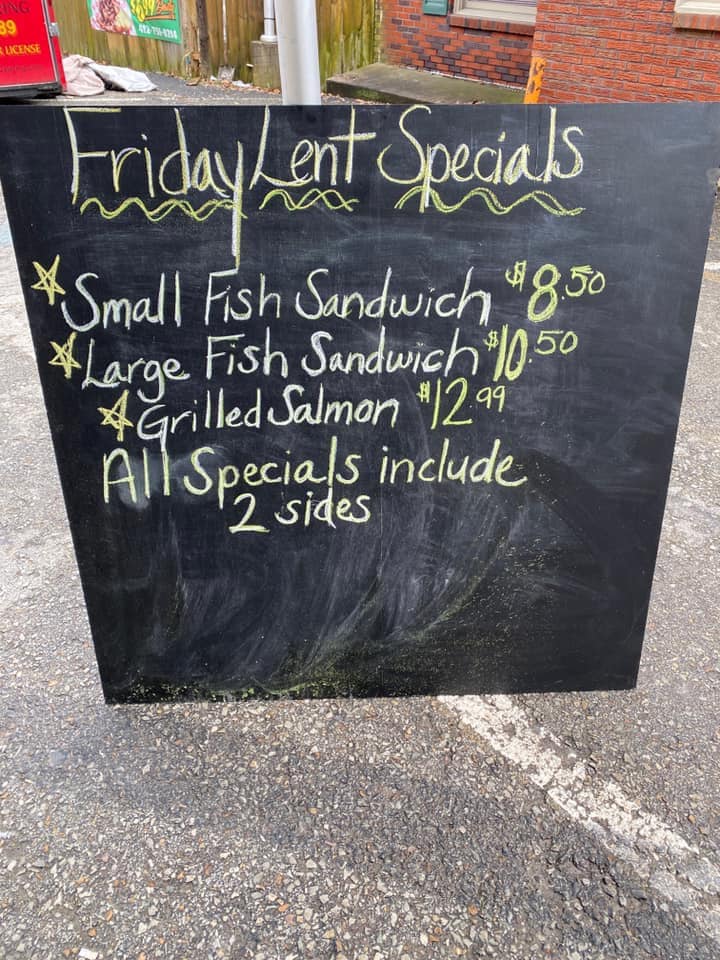 ING
89
R LICENSE
Friday Lent Specials
Small Fish Sandwich $8.50
Large Fish Sandwich $10.50
Grilled Salmon $12.99
All Specials include
2 sides